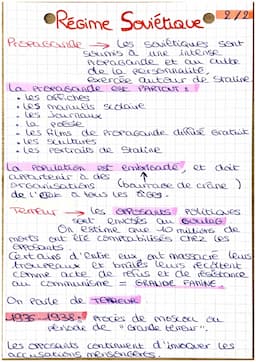 Régime Soviétique
2/2
Propagande → Les soviétiques sont
soumis à une intense
propagande et au culte
de la personnalité,
exercée autour de Staline
La propagande est PARTOUT :
• Les affiches
• Les manuels scolaire
• Les Journaux
• La presse
• Les films de propagande diffusé gratuit
• Les sculptures
• Les portraits de Staline
La population est embrigadé, et doit
appartenir à des ↑
organisations (bourrage de crâne)
de l'état à tous les âges.
Terreur → les opposants politiques
sont envoyés au Goulag
On estime que 10 millions de
morts ont été comptabilisés chez les
opposants
Certains d'entre eux ont massacré leurs
troupeaux et brulés leurs récoltent
comme acte de refus et de résistance
au communisme = GRANDE FAMINE.
On parle de TERREUR
1936-1938 : procès de moscou ou
période de "Grande terreur".
Les opposants continuent d'
les
accusations mensongères.